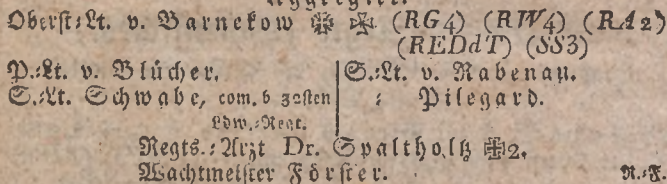 Aggregirt.
Oberst-Lt. v. Barnekow (RG4) (RW4) (RA2)
(REDdT) (SS3)
P.-Lt. v. Blücher.
S.-Lt. Schwabe, com. b 30sten
Ldw.-Regt.
S.-Lt. v. Rabenau.
: Pilegard.
Regts.-Arzt Dr. Spaltholtz 2.
Wachtmeister Förster.
R.-F.